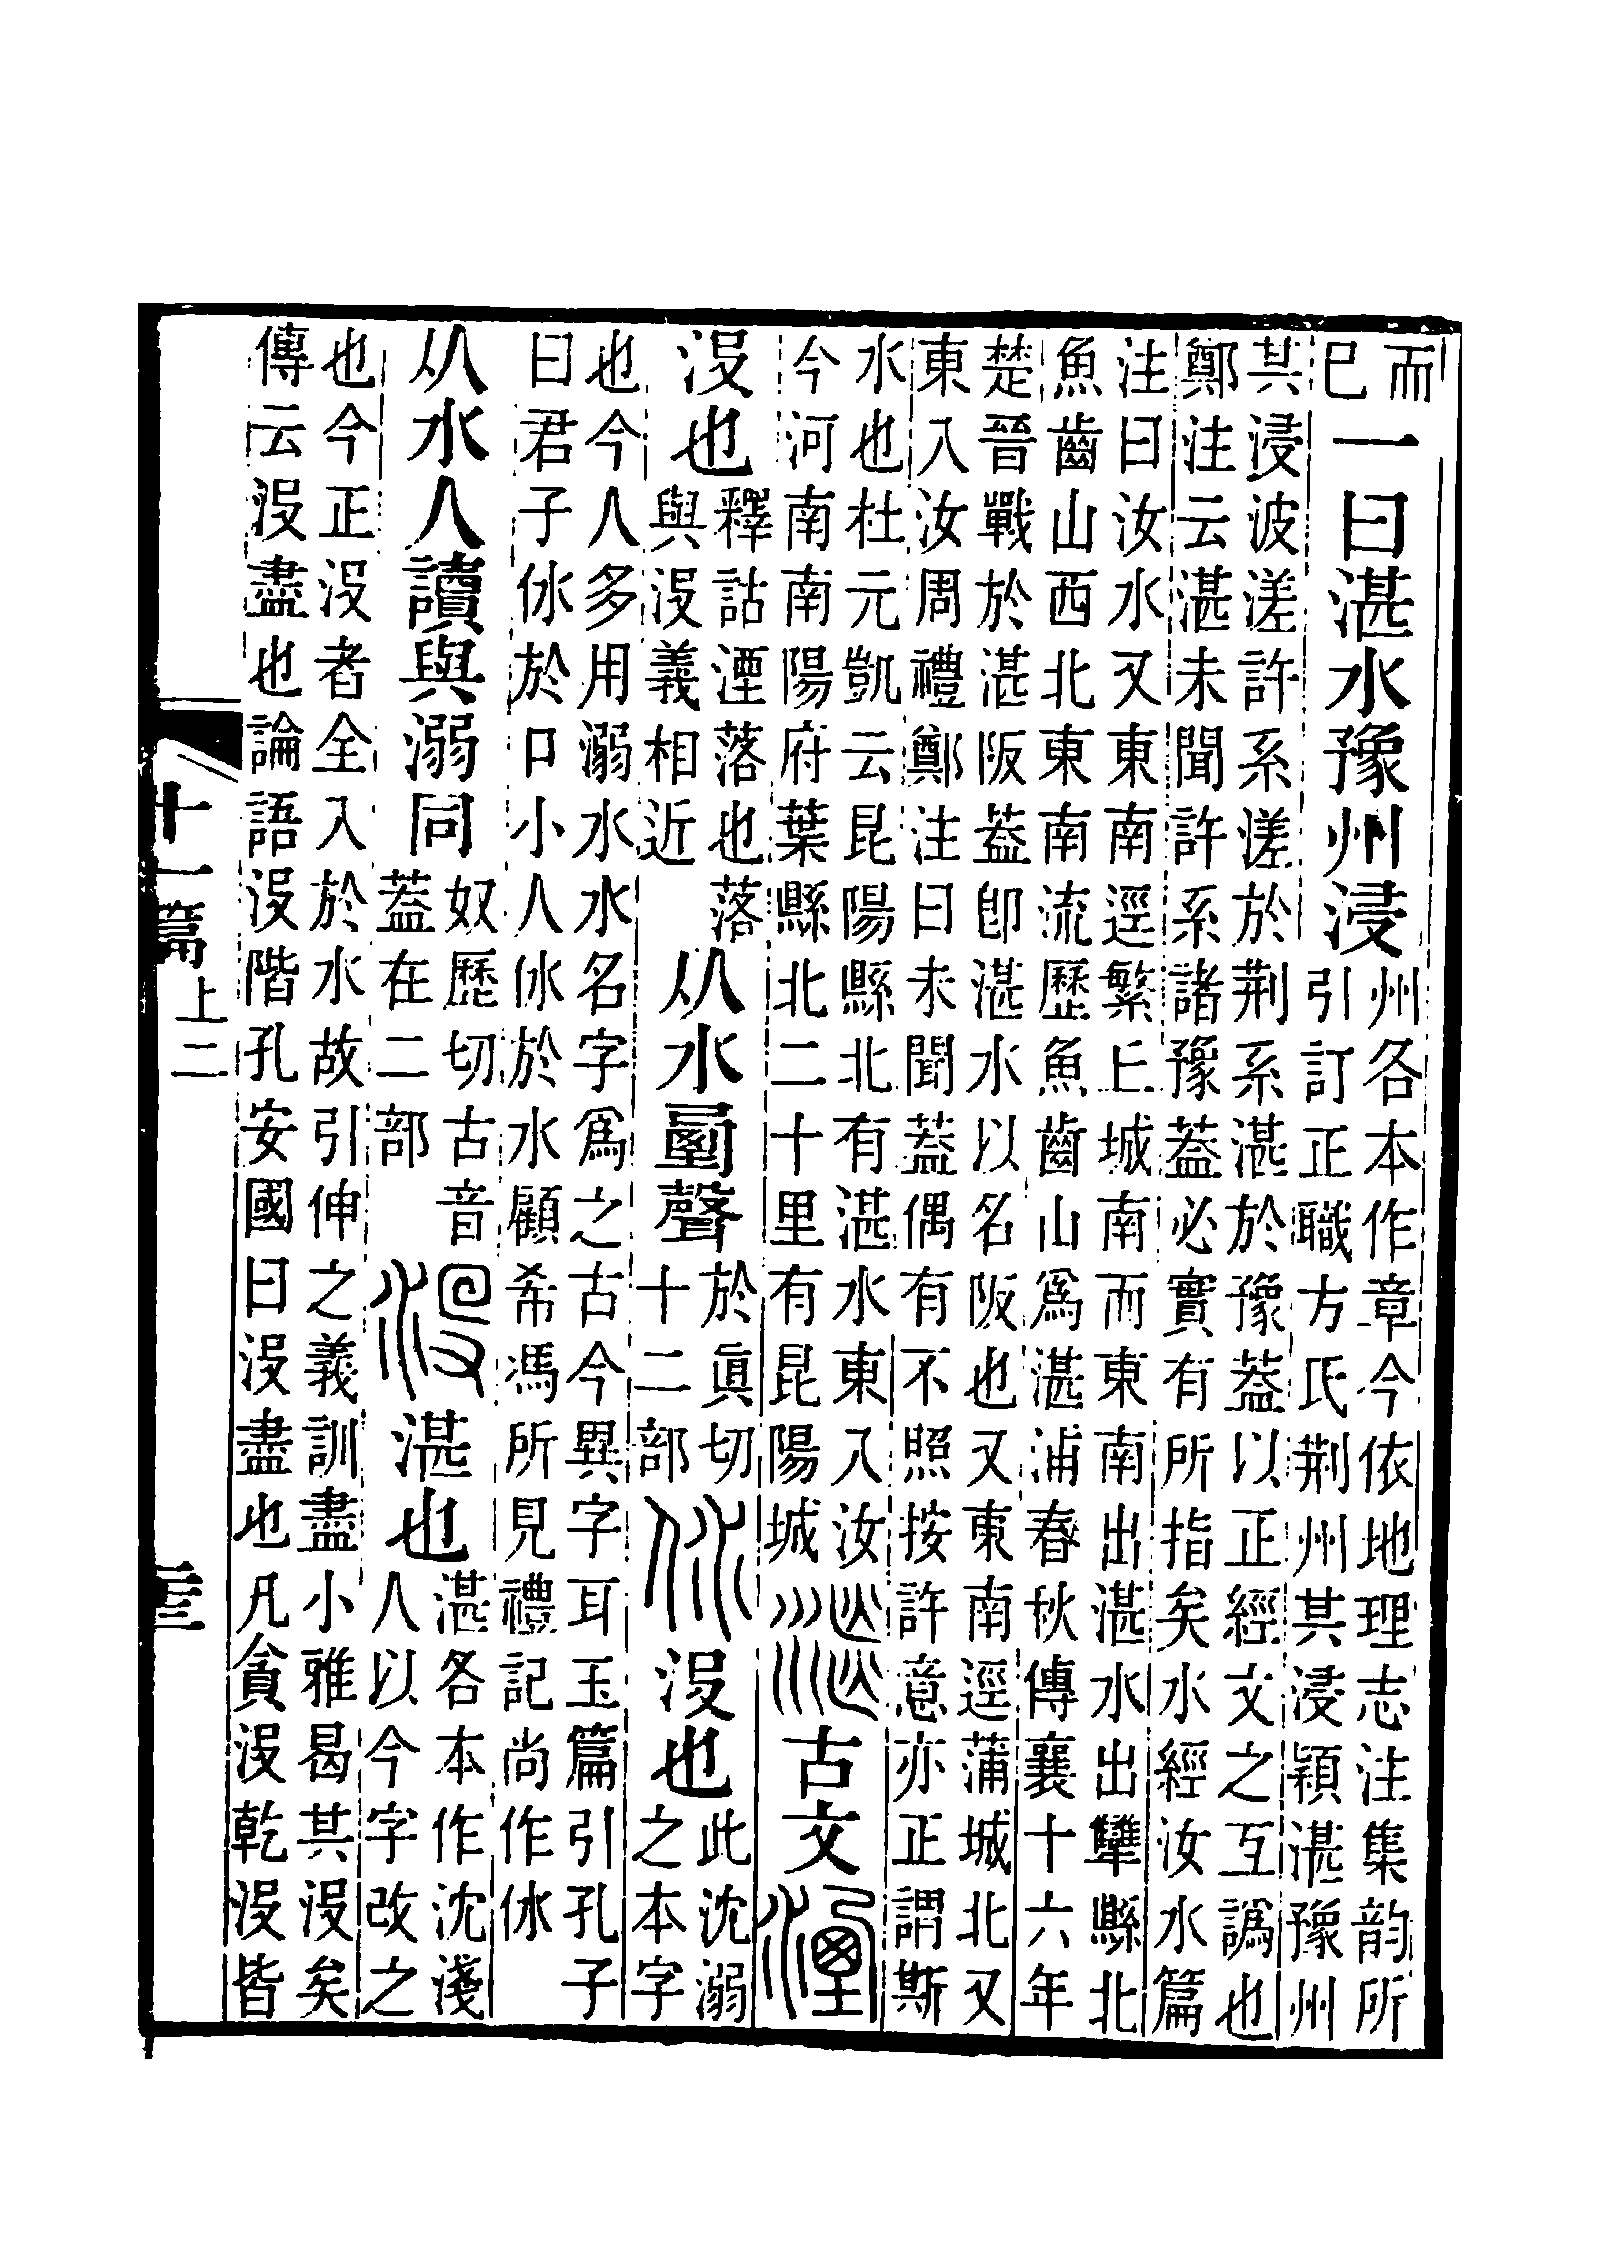 而已一曰湛水豫州浸州各本作章今依地理志注集韵所引訂正職方氏荆州其浸潁湛豫州
其浸波溠許系溠於荆系湛於豫蓋以正經文之互譌也鄭注云湛未聞許系諸豫蓋必實有所指矣水經汝水篇
注曰汝水又東南逕繁丘城南而東南出湛水出犨縣北魚齒山西北東南流歷魚齒山爲湛浦春秋傳襄十六年
楚晉戰於湛阪蓋卽湛水以名阪也又東南逕蒲城北又東入汝周禮鄭注曰未聞蓋偶有不照按許意亦正謂斯
水也杜元凱云昆陽縣北有湛水東入汝今河南南陽府葉縣北二十里有昆陽城古文湮
沒也釋詁湮落也落與沒義相近从水垔聲於眞切十二部㲻沒也此沈溺之本字
也今人多用溺水水名字爲之古今異字耳玉篇引孔子曰君子㲻於口小人㲻於水顧希馮所見禮記尚作㲻
从水人讀與溺同奴歷切古音蓋在二部沒湛也湛各本作沈淺人以今字改之
也今正沒者全入於水故引伸之義訓盡小雅曷其沒矣傳云沒盡也論語沒階孔安國曰沒盡也凡貪沒乾沒皆
十一篇上二